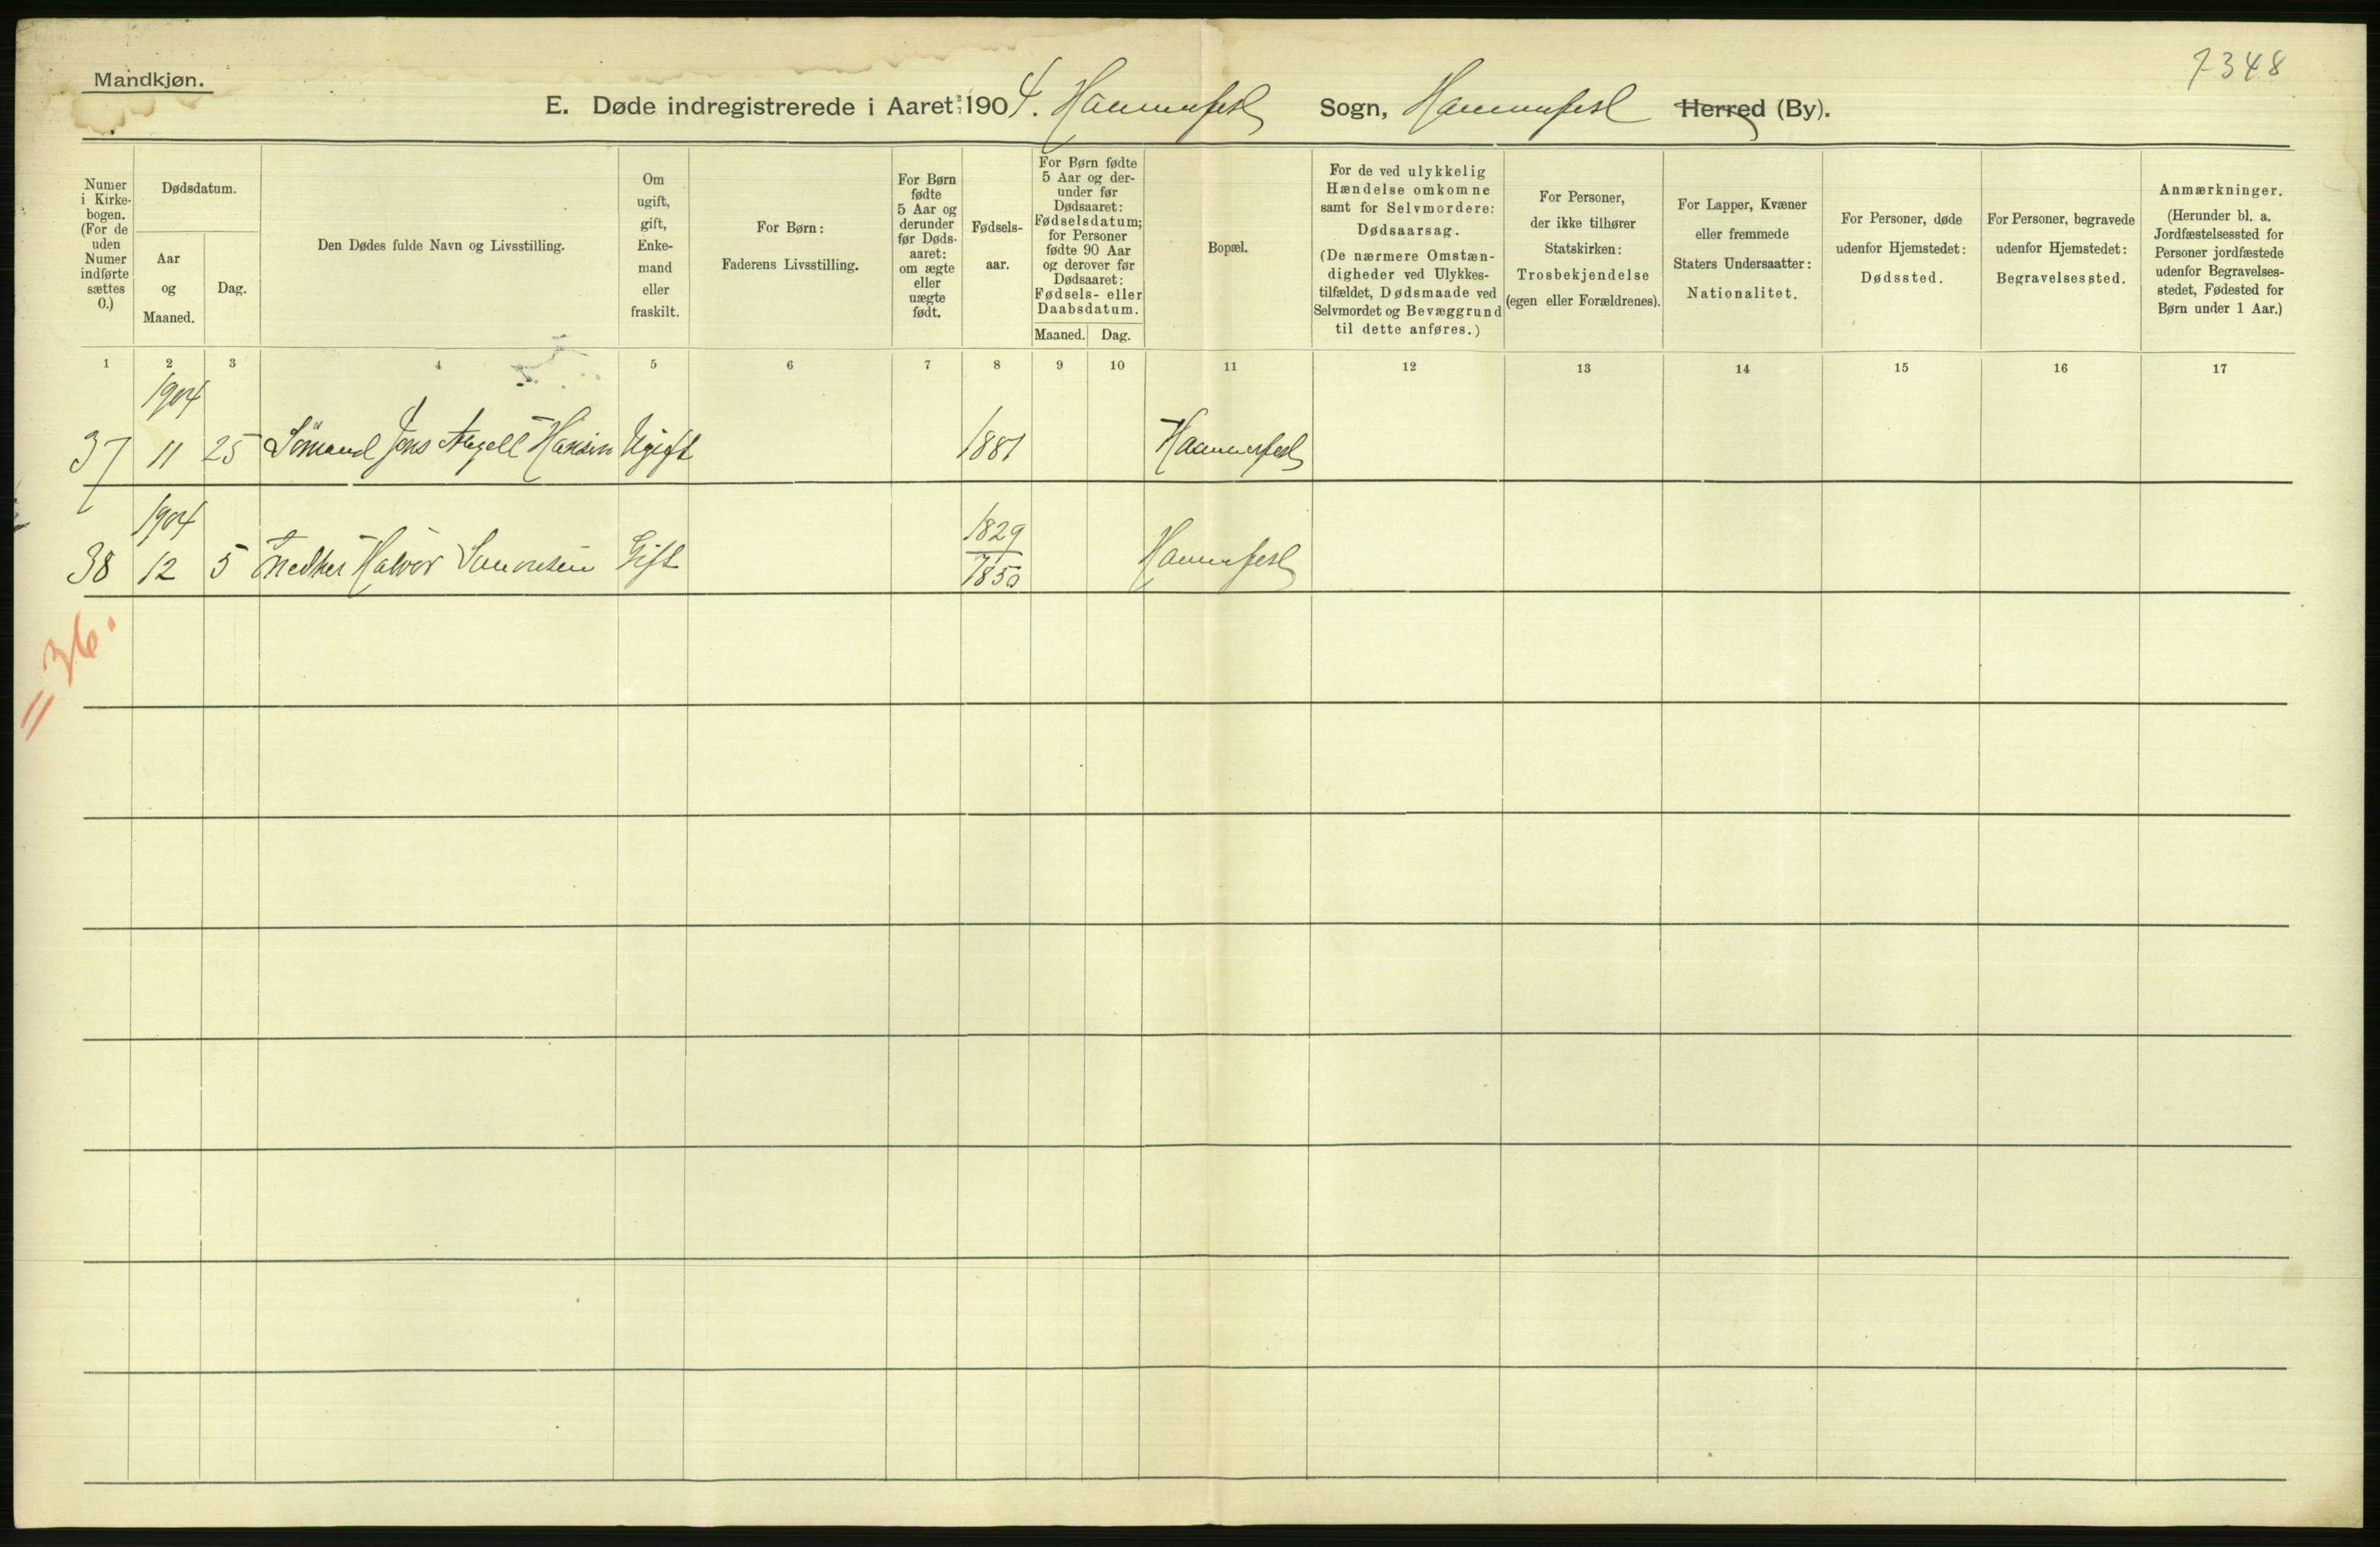 7348
Mandkjøn.
E. Døde indregistrerede i Aaret 1904. Hammerfest Sogn, Hammerfest Herred (By).
Numer i Kirkebogen. (For de uden Numer indførte sættes 0.)
Dødsdatum.
Aar og Maaned.
Dag.
Den Dødes fulde Navn og Livsstilling.
Om ugift, gift, Enkemand eller fraskilt.
For Børn: Faderens Livsstilling.
For Børn fødte 5 Aar og derunder før Dødsaaret: om ægte eller uægte født.
Fødselsaar.
For Børn fødte 5 Aar og derunder før Dødsaaret: Fødselsdatum; for Personer fødte 90 Aar og derover før Dødsaaret: Fødsels- eller Daabsdatum.
Maaned. Dag.
Bopæl.
For de ved ulykkelig Hændelse omkomne samt for Selvmordere: Dødsaarsag. (De nærmere Omstændigheder ved Ulykkestilfældet, Dødsmaade ved Selvmordet og Bevæggrund til dette anføres.)
For Personer, der ikke tilhører Statskirken: Trosbekjendelse (egen eller Forældrenes).
For Lapper, Kvæner eller fremmede Staters Undersaatter: Nationalitet.
For Personer, døde udenfor Hjemstedet: Dødssted.
For Personer, begravede udenfor Hjemstedet: Begravelsessted.
Anmærkninger. (Herunder bl. a. Jordfæstelsessted for Personer jordfæstede udenfor Begravelsesstedet, Fødested for Børn under 1 Aar.)
1 2 3 4 5 6 7 8 9 10 11 12 13 14 15 16 17
1904
37 11 25 Sömand Jens Angell Hansen Ugift 1881 Hammerfest
1904 1829
38 12 5 Snedker Halvor Simonsen Gift 1850 Hammerfest
= 36.